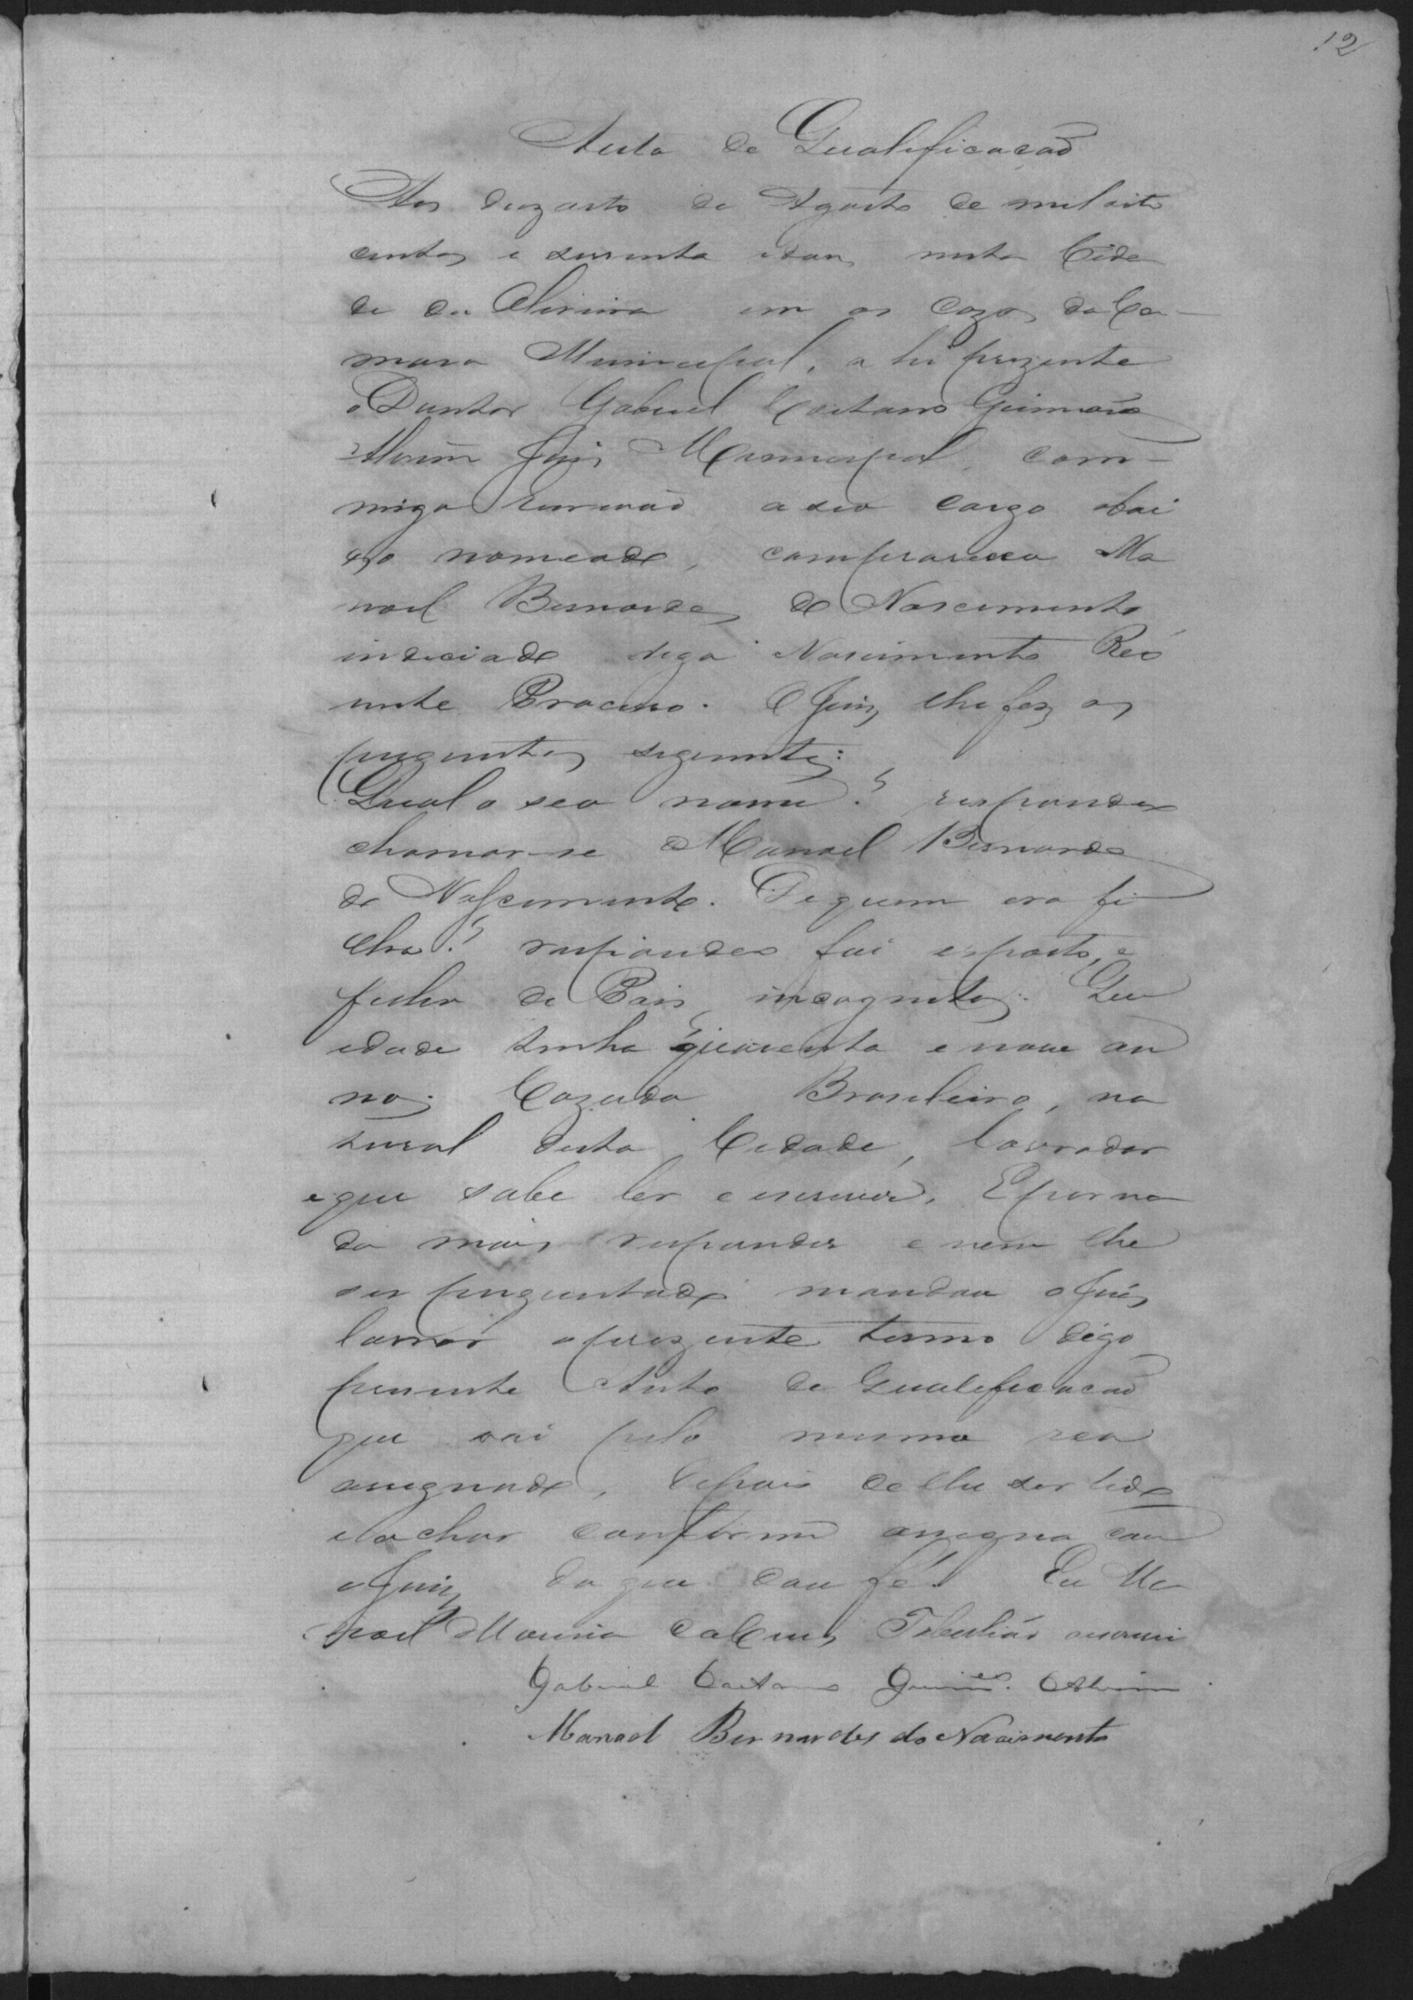 12
Auto de Qualificacaõ
Aos dezoito de Agosto de mil oito
centos e secenta e dous nesta Cida
de da Oliveira em as Cazas da Ca-
mara Municipal, a hi prezente
o Doutor Gabriel Caetano Guimarães
Alvim Juis Municipal, com-
migo Escrivaõ a seo cargo abai
xo nomeado, compareceo Ma
noel Bernardes do Nascimento
indiciado digo Nascimento Reó
neste Procêsso. O Juiz lhe fez as
preguntas seguintes:
Qual o seo nome? respondeo
chamar-se Manoel Bernardes
do Nascimento. De quem era fi
lho? respondeo foi esposto, e
filho de Pais incognitos. Que
idade tinha? quarenta e nove an
nos. Cazado Brasileiro, na
tural desta Cidade, lavrador
e que sabe ler e escrever. E por na
da mais responder e nem lhe
ser preguntado mandou o Juiz
lavrar o prezente termo digo
prezente Auto de Qualificacaõ
que vai pelo mesmo reo
assignado, depois de lhe ser lido
e o achar conforme assigna com
o Juiz, do que dou fé. Eu Ma
noel Tabeliaõ escrevi
Gabriel Caetano Guim.es Alvim
Manoel Bernardes do Nacimento